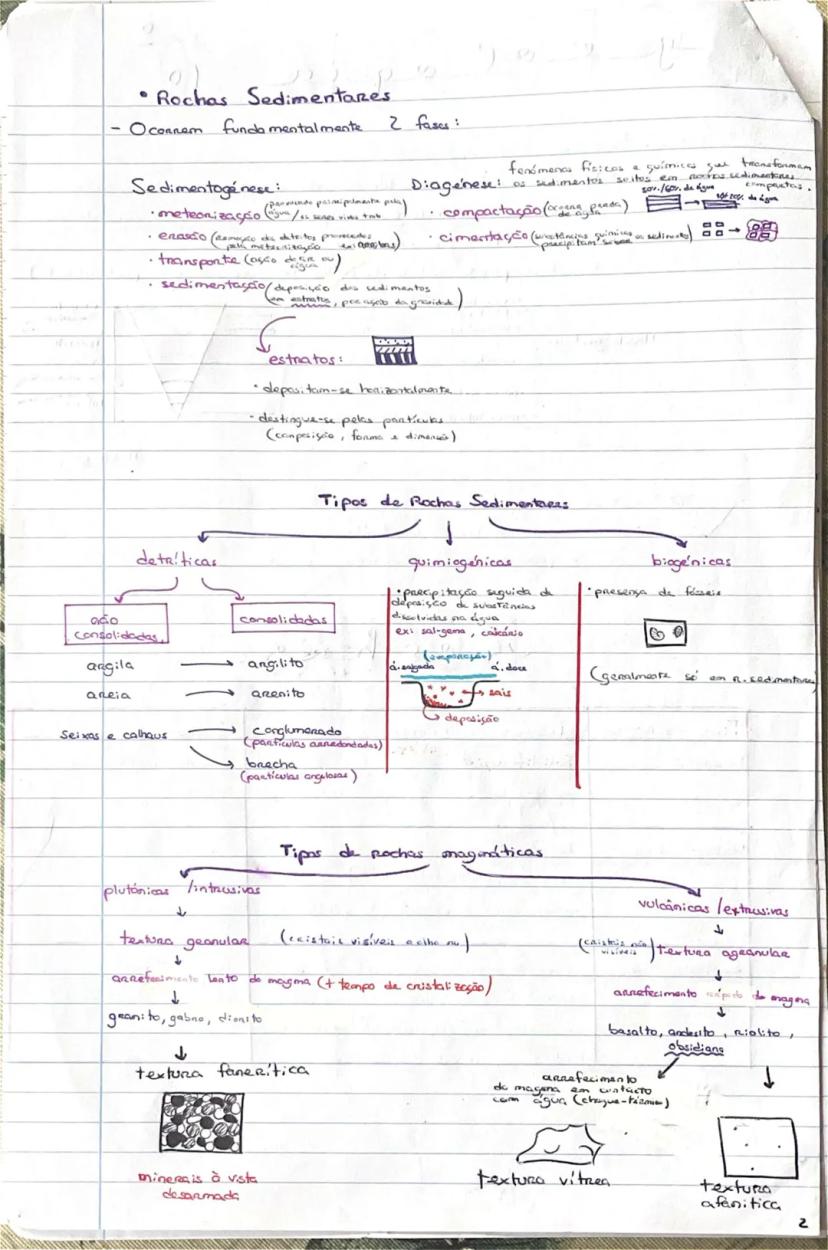 • Rochas Sedimentares
- Ocorrem fundamentalmente 2 fases:
Sedimentogénese:
• meteorização (provocado principalmente pela água / os seres vivos tmb)
• erosão (remoção de detritos provocados pela meteorização
• transporte (ação do ar ou água)
• sedimentação (deposição dos sedimentos
em estratos, por ação da gravidade)
Diagénese: fenómenos físicos e químicos que transformam
os sedimentos soltos em rochas sedimentares compactas.
• compactação (ocorre perda de água)
50%/60% de água
de água
• cimentação (substâncias químicas precipitam sobre
estratos:
• depositam-se horizontalmente
• destingue-se pelas partículas
(composição, forma e dimensão)
Tipos de Rochas Sedimentares
detríticas
quimiogénicas
biogénicas
não
consolidadas
consolidadas
argila
argilito
areia
arenito
seixos e calhaus
conglomerado
(partículas arredondadas)
brecha
(partículas angulosas)
• precipitação seguida de
deposição de substâncias
dissolvidas na água
ex: sal-gema, calcário
(evaporação)
á. salgada
á. doce
sais
deposição
• presença de fósseis
(geralmente só em r. sedimentares)
Tipos de rochas magmáticas
plutónicas /intrusivas
textura granular (cristais visíveis a olho nu)
arrefecimento lento do magma (+ tempo de cristalização)
granito, gabro, diorito
textura fanerítica
minerais à vista
desarmada
vulcânicas /extrusivas
(cristais não visíveis) textura agranular
arrefecimento rápido do magma
basalto, andesito, riolito,
obsidiana
arrefecimento
do magma em contacto
com água (choque-térmico)
textura vítrea
textura
afanítica
2